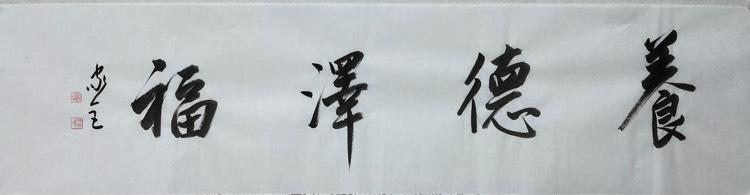 養德澤福